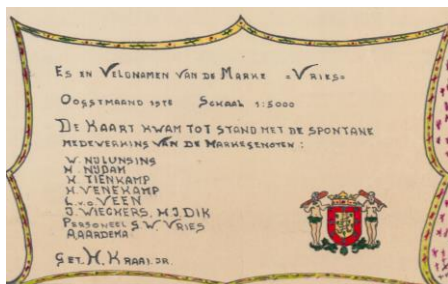 Es en Veldnamen van de Marke "Vries"
Oogstmaand 1978 Schaal 1:5000
De Kaart kwam tot stand met de spontane
medewerking van de Markegenoten:
H. Nijdam
H. Tienkamp
H. Venekamp
L. v.d. Veen
J. Wiegkers, H.J. Dik
Personeel G.W. Vries
Aardema
Get. H. Kraai Jr.